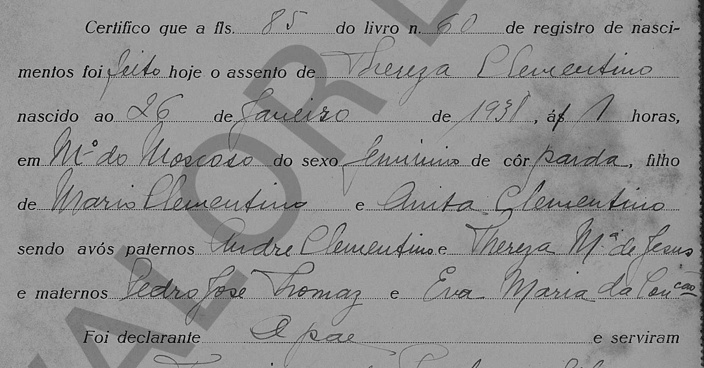 Certifico que a fls. 85 do livro n. 60 de registro de nasci-
mentos foi feito hoje o assento de Thereza Clementino
nascido ao 26 de Janeiro de 1931, ás 1 horas,
em Mº do Moscoso do sexo feminino de côr parda, filho
de Mario Clementino e Anita Clementino
sendo avós paternos Andre Clementino e Thereza Mª de Jesus
e maternos Pedro José Thomaz e Eva Maria da Concção
Foi declarante O pae e serviram
VALOR